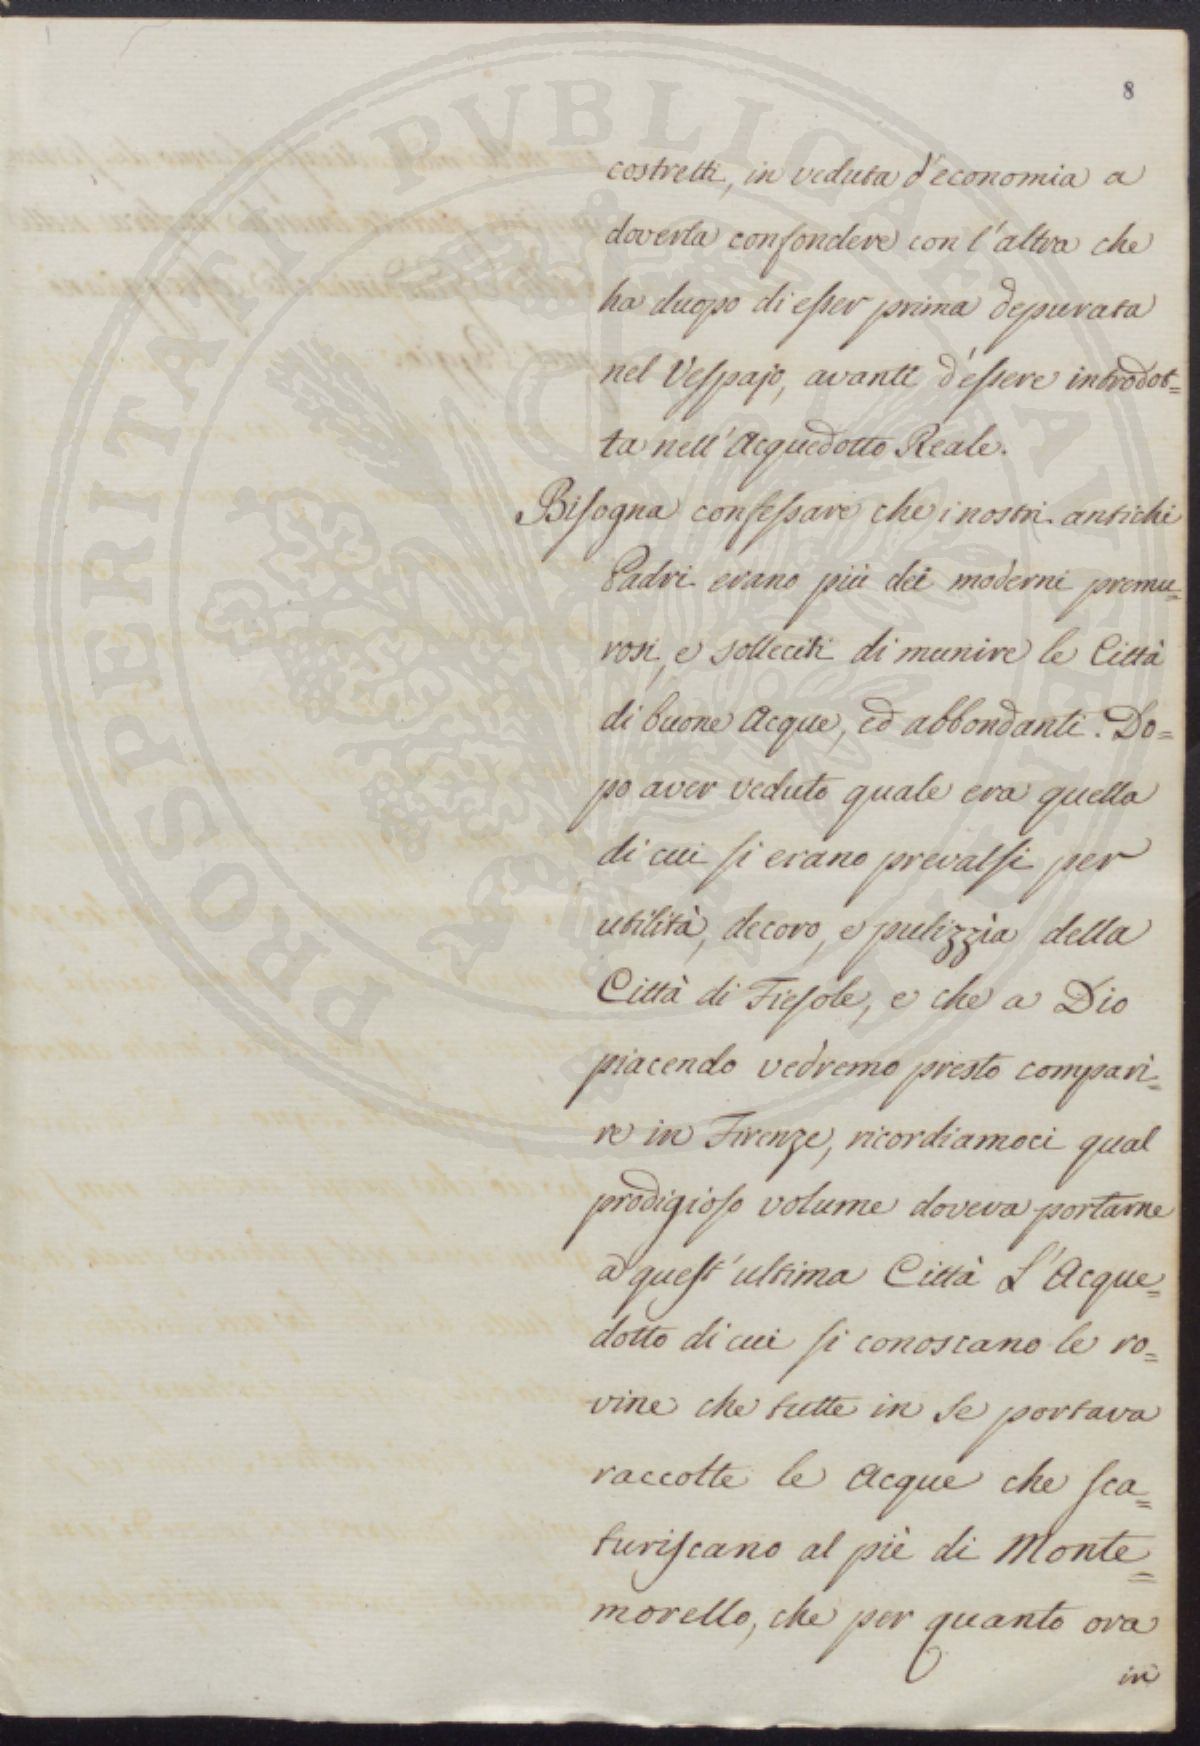 8
costretti, in veduta d'economia a
doverla confondere con l'altra che
ha duopo di eſser prima depurata
nel Veſpajo, avanti d'eſsere introdot=
ta nell'Acquedotto Reale.
Biſogna confeſsare che i nostri antichi
Padri erano più dei moderni premu=
rosi, e solleciti di munire le Città
di buone Acque, ed abbondanti. Do=
po aver veduto quale era quella
di cui ſi erano prevalſi per
utilità, decoro, e pulizzìa della
Città di Fieſole, e che a Dio
piacendo vedremo presto compari=
re in Firenze, ricordiamoci qual
prodigioſo volume doveva portarne
a queſt'ultima Città L'Acque=
dotto di cui ſi conoscano le ro=
vine che tutte in se portava
raccolte le Acque che ſca=
turiſcano al piè di Monte=
morello, che per quanto ora
in
PROSPERITATI PVBLICAE AVGENDAE